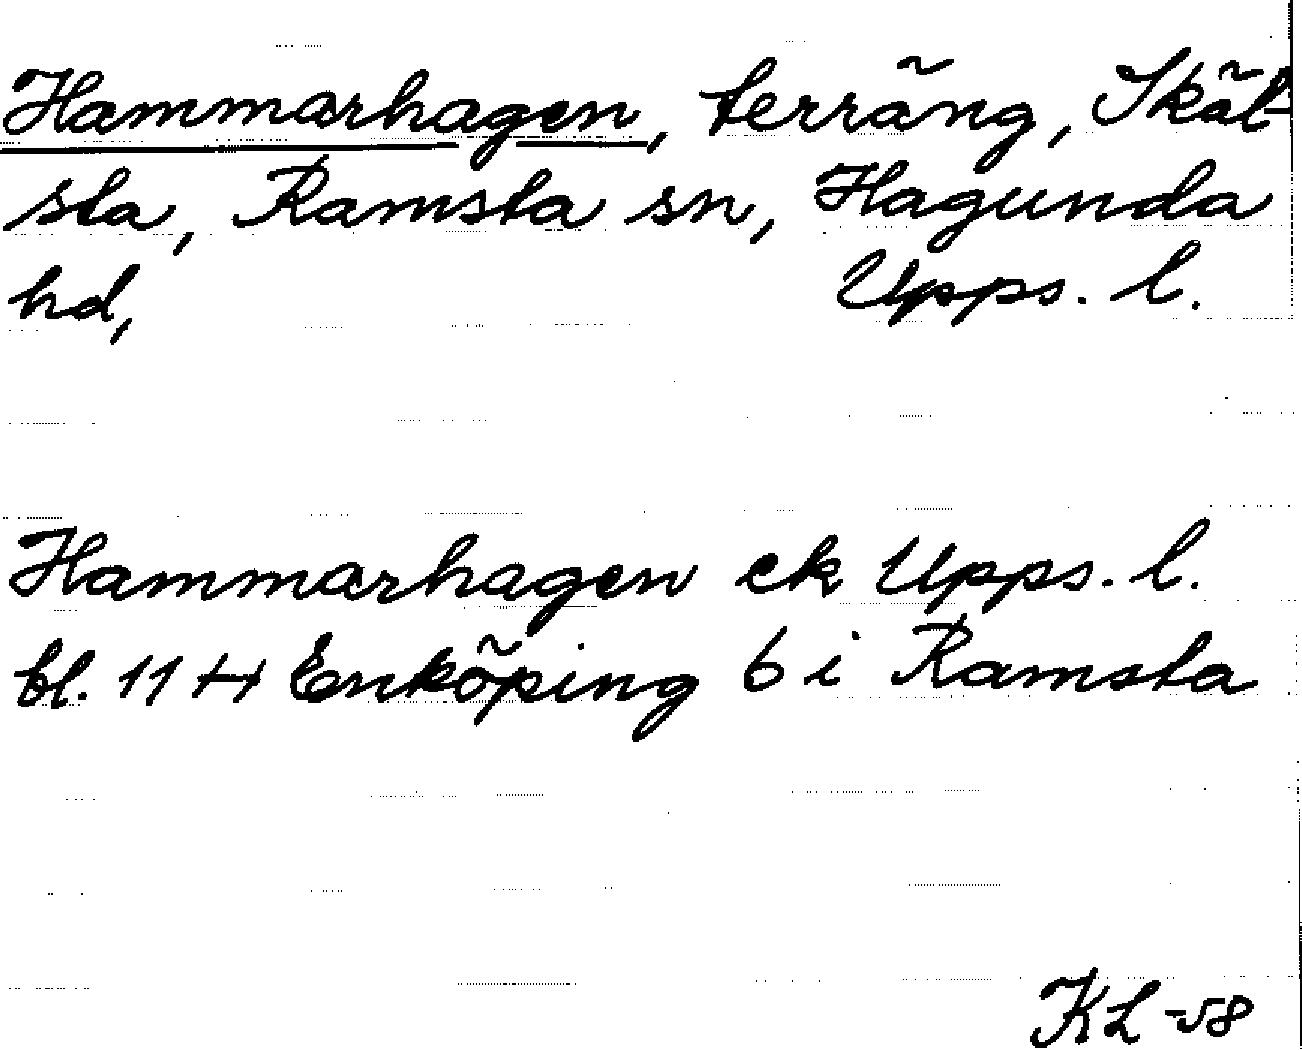 Hammarhagen, terräng, Skäl-
sta, Ramsta sn, Hagunda
hd, Upps. l.
Hammarhagen ek Upps. l.
bl. 11 H Enköping 6 i Ramsta
KL -58